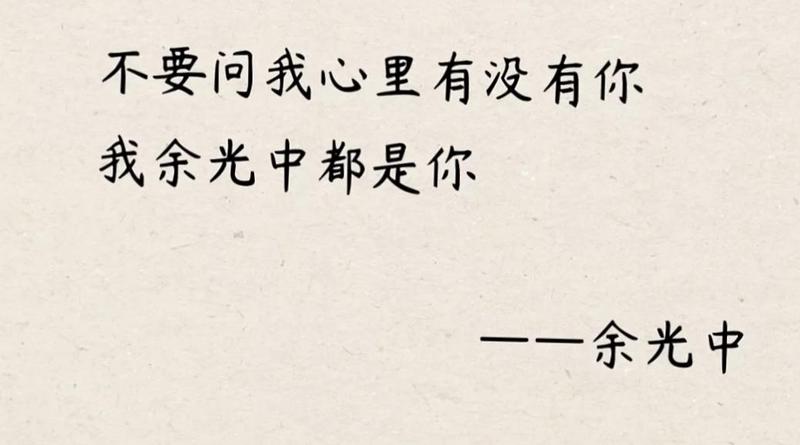 不要问我心里有没有你
我余光中都是你
——余光中